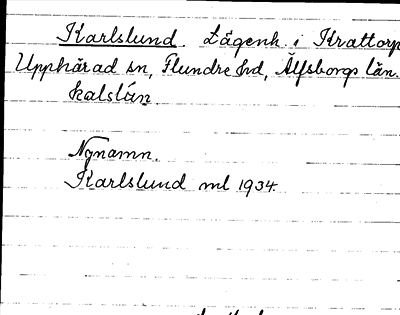 Karlslund. Lägenh. i Krattorp
Upphärad sn, Flundre hd, Älfsborgs län.
Nynamn.
Karlslund ml 1934.